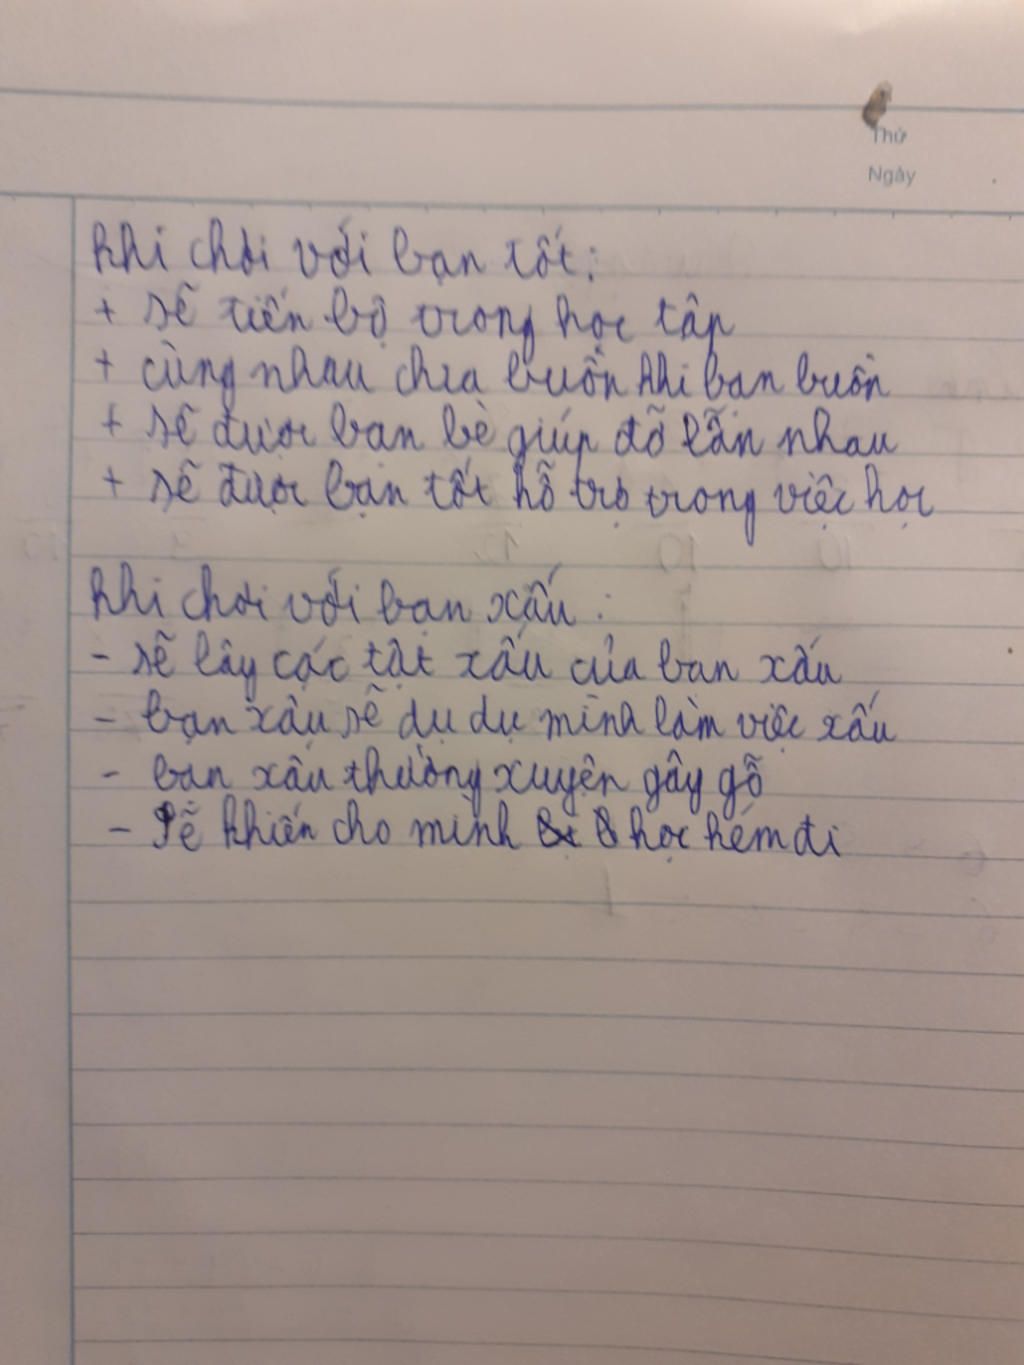 Thứ
Ngày
khi chơi với bạn tốt:
+ sẽ tiến bộ trong học tập
+ cùng nhau chia buồn khi bạn buồn
+ sẽ được bạn bè giúp đỡ lẫn nhau
+ sẽ được bạn tốt hỗ trợ trong việc học
khi chơi với bạn xấu:
- sẽ lây các tật xấu của bạn xấu
- bạn xấu sẽ dụ dụ mình làm việc xấu
- bạn xấu thường xuyên gây gỗ
- sẽ khiến cho mình học kém đi